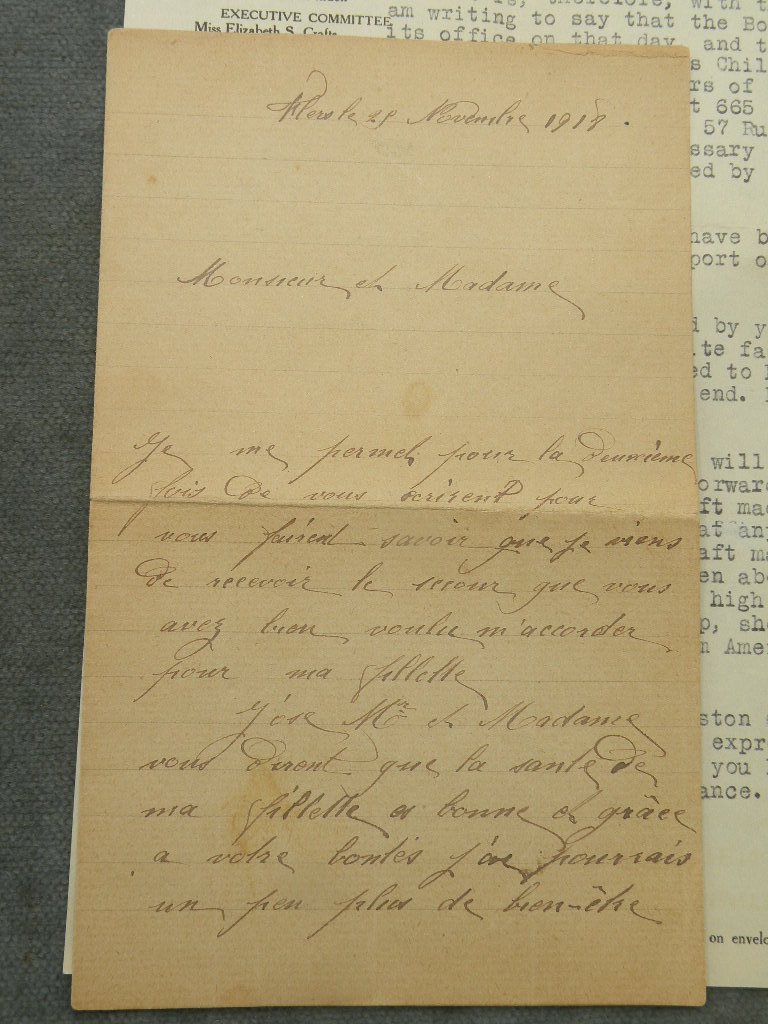 EXECUTIVE COMMITTEE
Miss Elizabeth S. Crafts
therefore, with
am writing to say that the Bo
its office on that day, and t
s Chil
rs of
t 665
57 Ru
ssary
ed by
have b
port o
d by y
ite fa
ed to
end.
will
orward
ft mad
at any
aft ma
en abo
high
p, sho
n Amer
ston
expr
you
ance.
on envelo
Flers le 29 Novembre 1918.
Monsieur et Madame
Je me permet pour la deuxième
fois de vous écrirent pour
vous fairent savoir que je viens
de recevoir le secour que vous
avez bien voulu m'accorder
pour ma fillette
J'ose Mr et Madame
vous dirent que la santé de
ma fillette es bonne et grâce
a votre bontés j'ai pourrais
un peu plus de bien-être